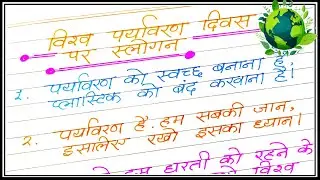 विश्व पर्यावरण दिवस
पर स्लोगन
1. पर्यावरण को स्वच्छ बनाना है,
प्लास्टिक को बंद करवाना है।
2. पर्यावरण है हम सबकी जान,
इसलिए रखो इसका ध्यान।
हम धरती को रहने के
विश्व